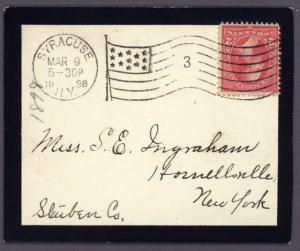 SYRACUSE
MAR 9
5-30P
18 98
N.Y.
3
1898
Miss. S. E. Ingraham
Hornellsville,
New York
Steuben Co.